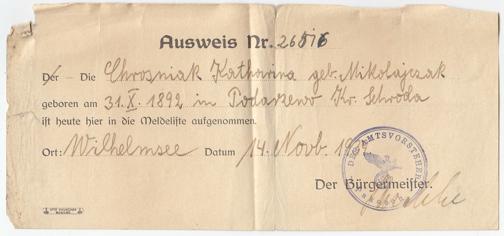 Ausweis Nr. 26516
Der - Die Chrosniak Katharina geb. Mikolajczak
geboren am 31. X. 1892 in Podarzewo Kr. Schroda
ist heute hier in die Meldeliste aufgenommen.
Ort: Wilhelmsee Datum 14. Novb. 19
DER AMTSVORSTEHER
Der Bürgermeister.